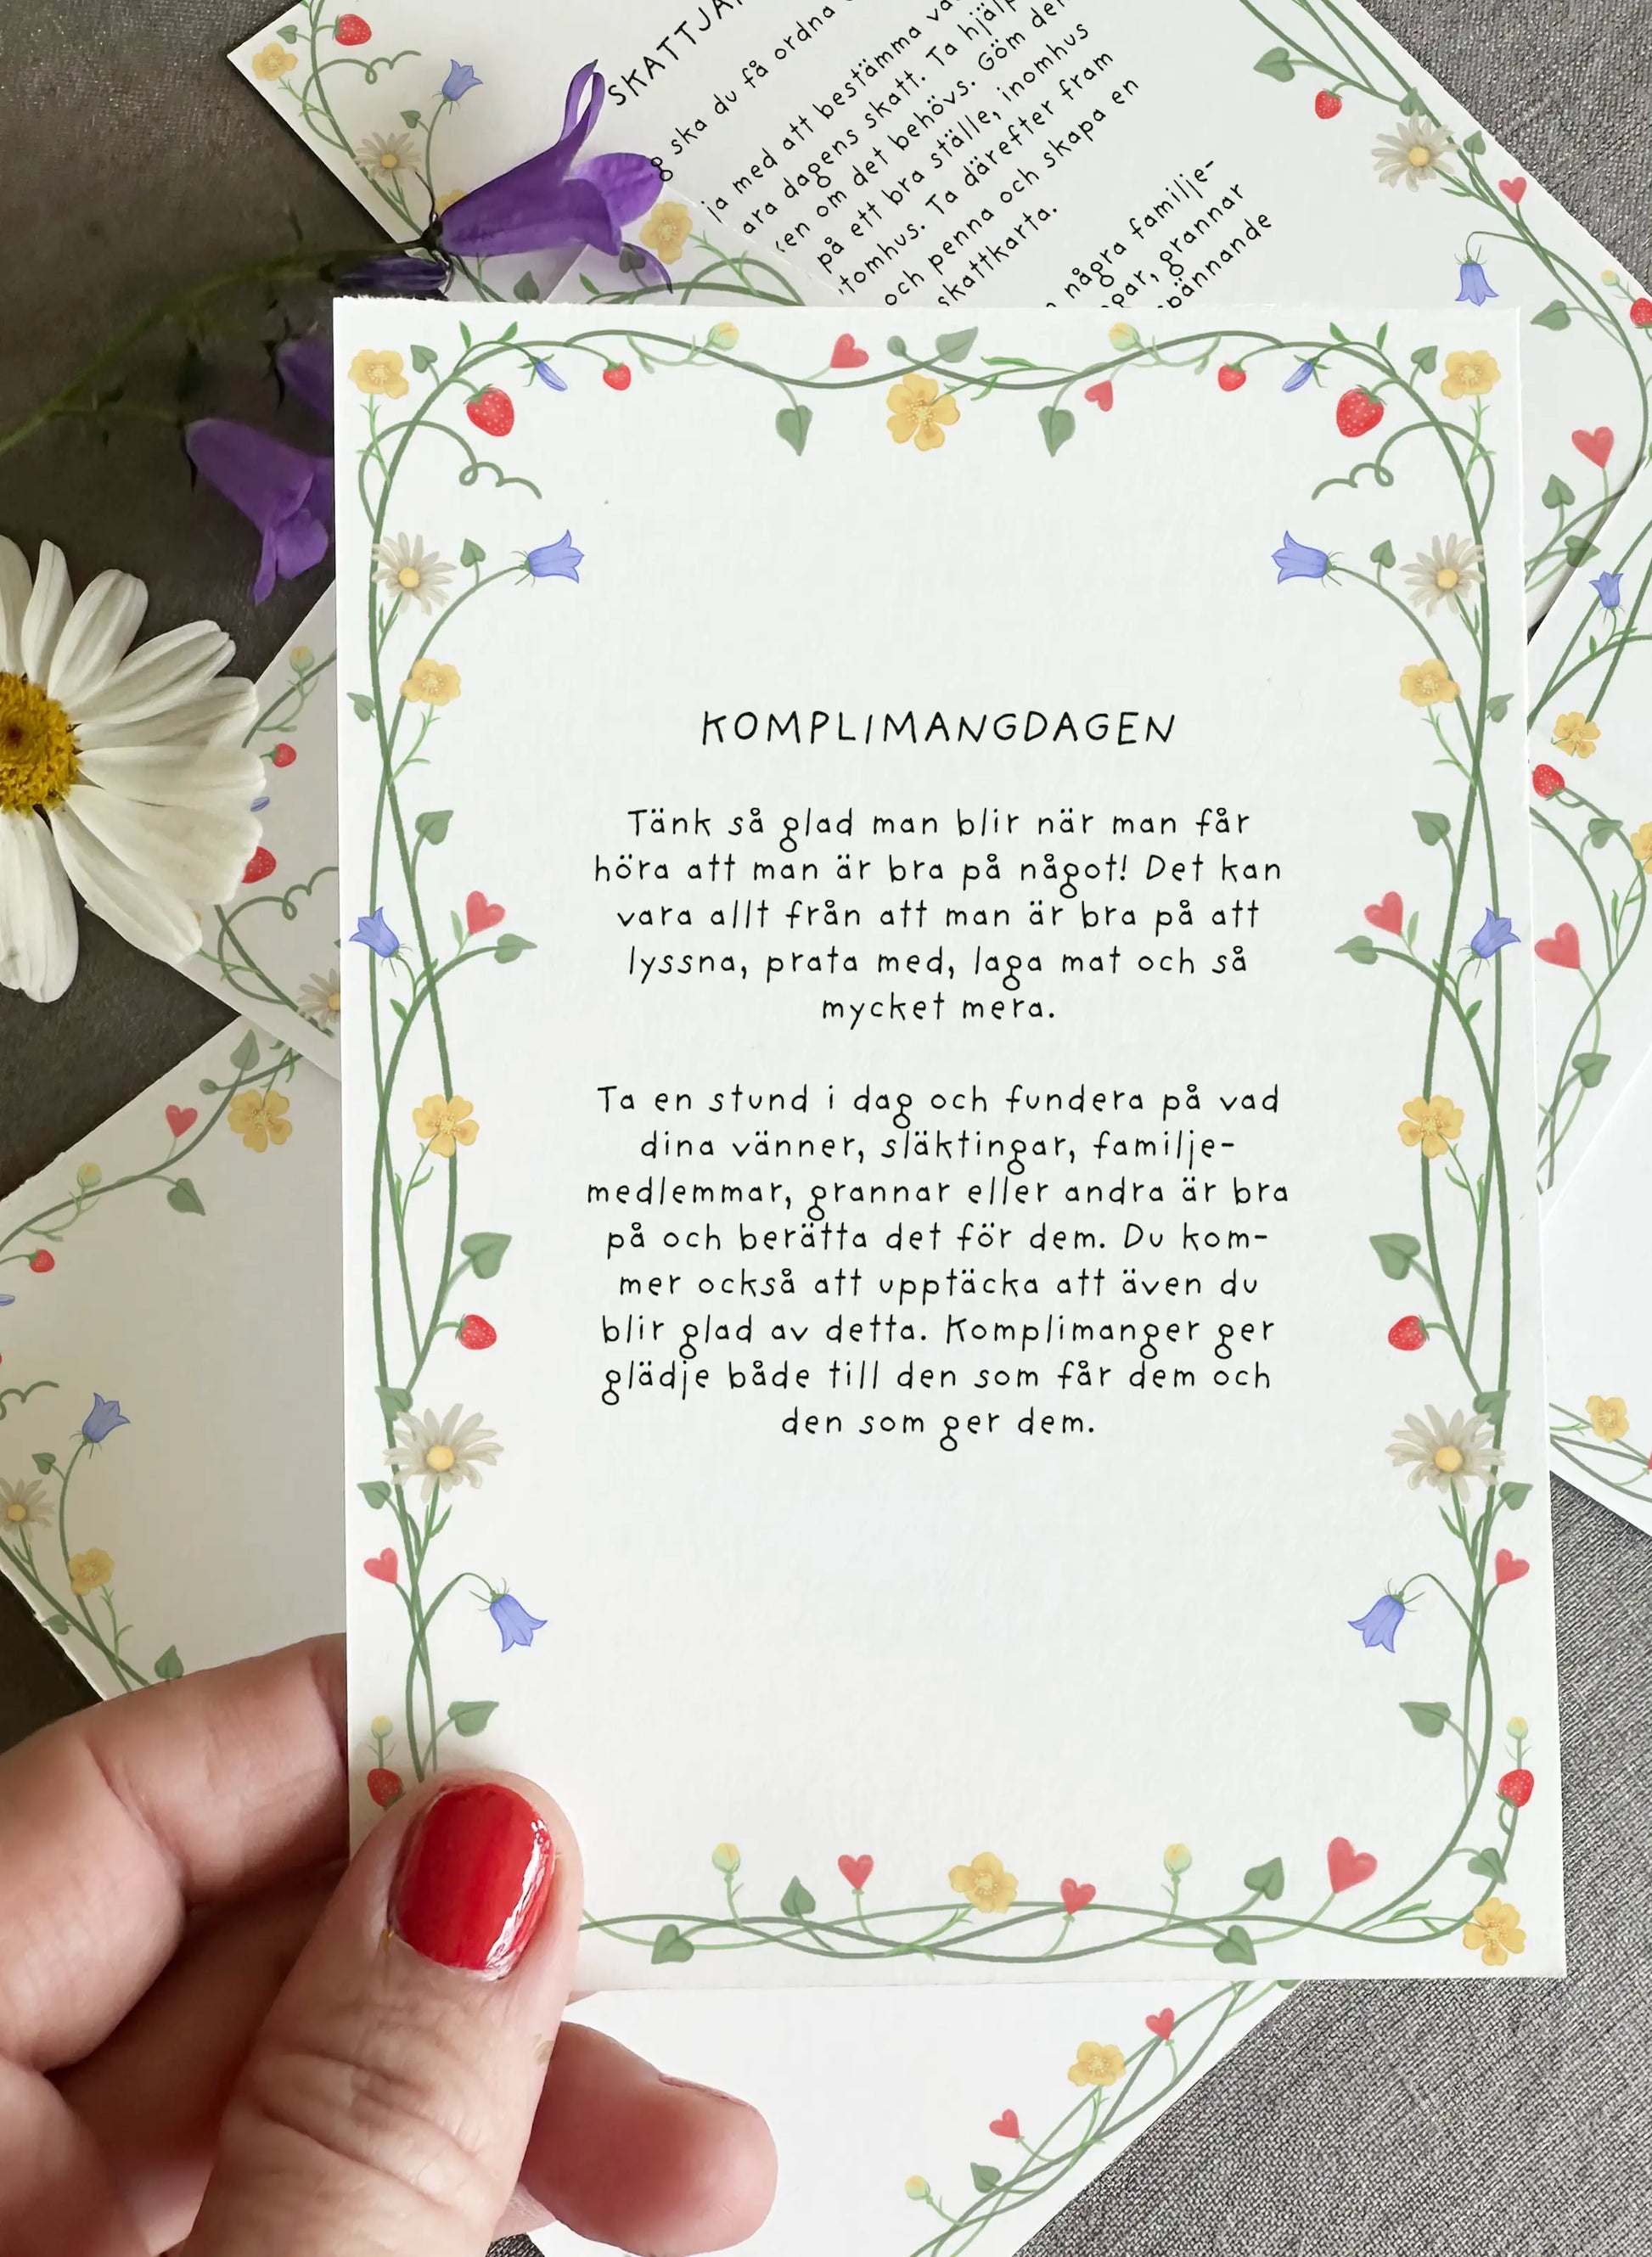 ska du få ordna
ja med att bestämma
dagens skatt. Ta
om det behövs. Göm
på ett bra ställe, inomhus
Ta därefter fram
och penna och skapa en
skattkarta.
några familje-
grannar
KOMPLIMANGDAGEN
Tänk så glad man blir när man får
höra att man är bra på något! Det kan
vara allt från att man är bra på att
lyssna, prata med, laga mat och så
mycket mera.
Ta en stund i dag och fundera på vad
dina vänner, släktingar, familje-
medlemmar, grannar eller andra är bra
på och berätta det för dem. Du kom-
mer också att upptäcka att även du
blir glad av detta. Komplimanger ger
glädje både till den som får dem och
den som ger dem.